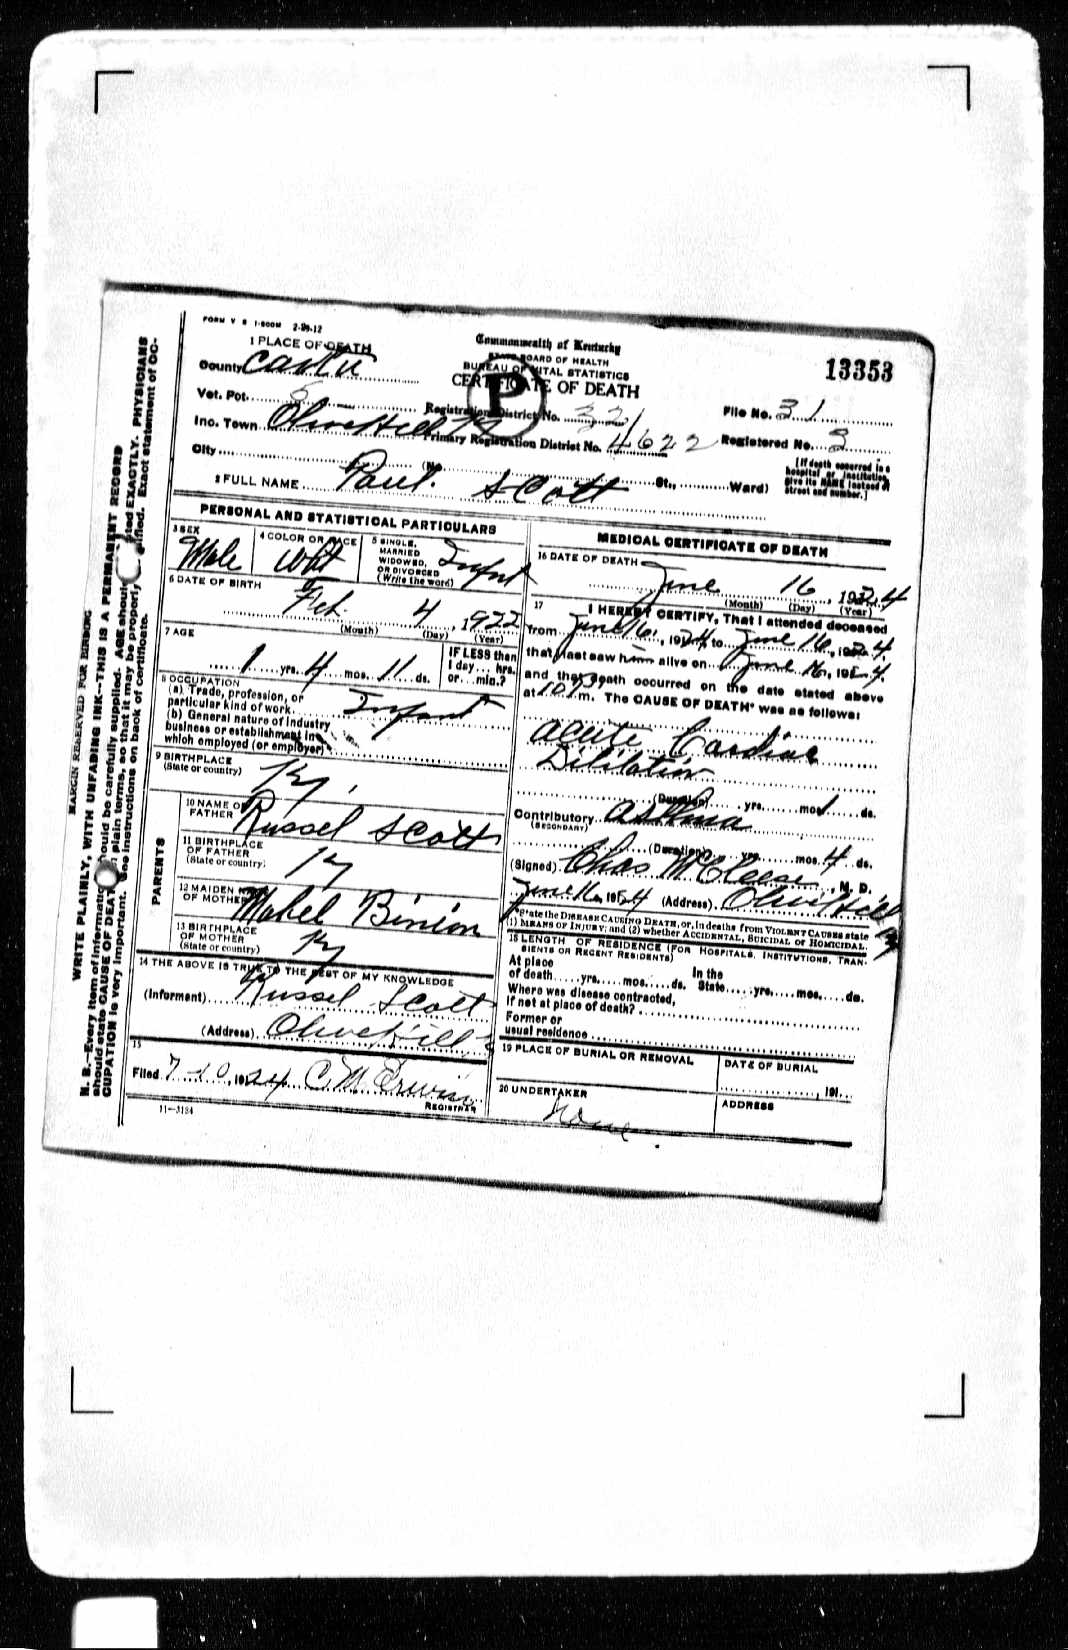 FORM V S 1-500M 2-29-12
1 PLACE OF DEATH
County Carter
Vot. Pot. 5
Inc. Town OliveHill Ky
City
(No. St., Ward)
2 FULL NAME Paul. Scott
Commonwealth of Kentucky
STATE BOARD OF HEALTH
BUREAU OF VITAL STATISTICS
CERTIFICATE OF DEATH
P
Registration District No. 321
Primary Registration District No. 4622
13353
File No. 31
Registered No. 3
[If death occurred in a
hospital or institution,
give its NAME instead of
street and number.]
PERSONAL AND STATISTICAL PARTICULARS
3 SEX
Male
4 COLOR OR RACE
Whit
5 SINGLE,
MARRIED
WIDOWED,
OR DIVORCED
(Write the word)
Infant
6 DATE OF BIRTH
Feb. 4, 1922
(Month) (Day) (Year)
7 AGE
1 yrs. 4 mos. 11 ds.
IF LESS than
1 day... hrs.
or... min.?
8 OCCUPATION
(a) Trade, profession, or
particular kind of work Infant
(b) General nature of industry
business or establishment in
which employed (or employer)
9 BIRTHPLACE
(State or country) Ky.
PARENTS
10 NAME OF
FATHER Russel Scott
11 BIRTHPLACE
OF FATHER
(State or country) Ky
12 MAIDEN NAME
OF MOTHER Mahel Binion
13 BIRTHPLACE
OF MOTHER
(State or country) Ky
14 THE ABOVE IS TRUE TO THE BEST OF MY KNOWLEDGE
(Informant) Russel Scott
(Address) OliveHill
15
Filed 7-10, 1924 C M Erwin
REGISTRAR
11-3184
MEDICAL CERTIFICATE OF DEATH
16 DATE OF DEATH
June 16, 1924
(Month) (Day) (Year)
17 I HEREBY CERTIFY, That I attended deceased
from June 16, 1924, to June 16, 1924.
that I last saw him alive on June 16, 1924.
and that death occurred on the date stated above
at m. The CAUSE OF DEATH* was as follows:
Acute Cardiac
Dilitation
(Duration) yrs. mos. 1 ds.
Contributory Asthma
(SECONDARY)
(Duration) yrs. mos. 4 ds.
(Signed) Chas M Cleese, M. D.
June 16, 1924 (Address) OliveHill Ky
*State the DISEASE CAUSING DEATH, or, in deaths from VIOLENT CAUSES state
(1) MEANS OF INJURY; and (2) whether ACCIDENTAL, SUICIDAL or HOMICIDAL.
18 LENGTH OF RESIDENCE (FOR HOSPITALS, INSTITUTIONS, TRAN-
SIENTS OR RECENT RESIDENTS)
At place In the
of death yrs. mos. ds. State yrs. mos. ds.
Where was disease contracted,
if not at place of death?
Former or
usual residence
19 PLACE OF BURIAL OR REMOVAL
DATE OF BURIAL
, 191
20 UNDERTAKER
None.
ADDRESS
MARGIN RESERVED FOR BINDING
WRITE PLAINLY, WITH UNFADING INK—THIS IS A PERMANENT RECORD
N. B.—Every item of information should be carefully supplied. AGE should be stated EXACTLY. PHYSICIANS
should state CAUSE OF DEATH in plain terms, so that it may be properly classified. Exact statement of OC-
CUPATION is very important. See instructions on back of certificate.